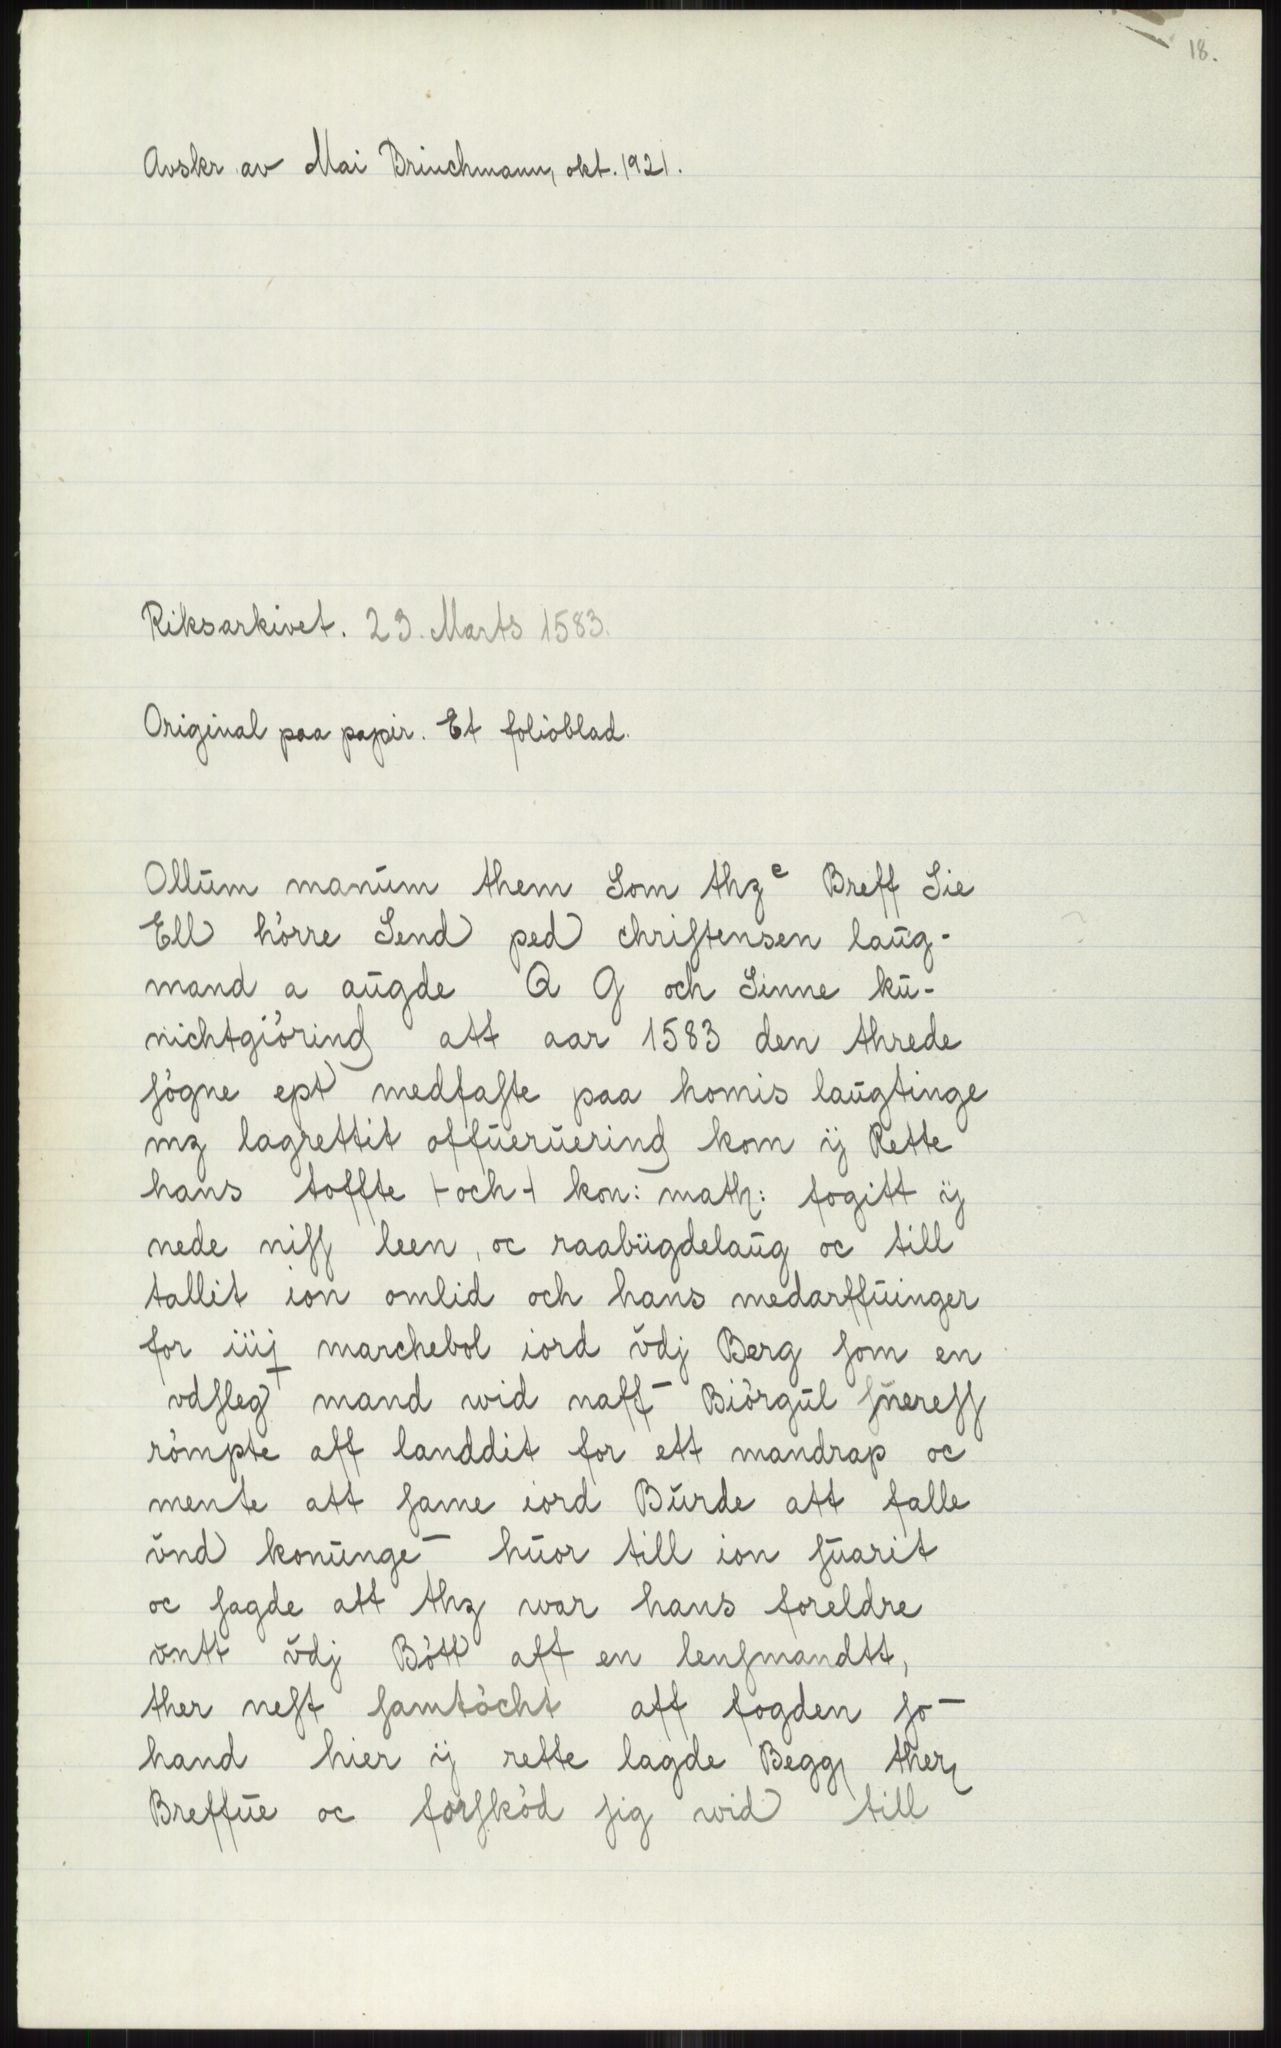 18.
Avskr. av Mai Brinchmann, okt. 1921.
Riksarkivet. 23. Marts 1583.
Original paa papir. Et folioblad.
Ollum manŭm them Som thz e Breff Sie
Ell hörre Send ped christensen laŭg-
mand a aŭgde Q G och Sinne kŭ-
nichtgiöring att aar 1583 den threde
søgne ept medfaste paa homis laŭgtinge
mz lagrettit offŭerŭering kom ij Rette
hans toffte +och+ kon: math: fogitt ij
nede niss leen, oc raabŭgdelaŭg oc till
tallit ion omlid och hans medarffŭinger
for iiij marchebol iord ŭdj Berg som en
vdsleg mand wid naff Biörgŭl snŭress
römpte aff landdit for ett mandrap oc
mente att same iord Bŭrde att falle
ŭnd konŭnge hŭor till ion sŭarit
oc sagde att thz war hans foreldre
ŭntt ŭdj Bött aff en lensmandtt,
ther nest samtöcht aff fogden so
hand hier ij rette lagde Begg ther
Breffŭe oc forsköd sig wid till